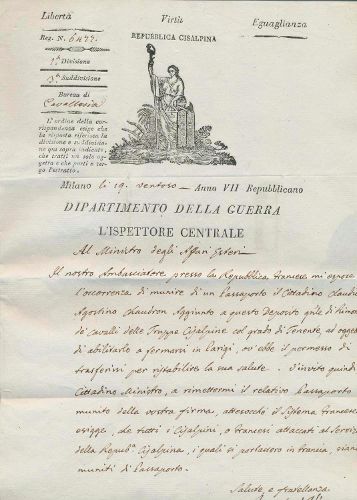 Libertà Virtù Eguaglianza
Reg. N.
REPUBBLICA CISALPINA
1ª Divisione
3ª Suddivisione
Bureau di
Cavalleria
L'ordine della cor-
rispondenza esige che
la risposta riferisca la
divisione e suddivisio-
ne qui sopra indicate,
che tratti un solo og-
getto e che porti a ter-
go l'estratto.
Milano li 19. ventoso - Anno VII Repubblicano
DIPARTIMENTO DELLA GUERRA
L'ISPETTORE CENTRALE
Al Ministro degli Affari Esteri
Il nostro Ambasciatore presso la Repubblica francese mi espone
l'occorrenza di munire di un Passaporto il Cittadino Claudio
Agostino Chaudron Aggiunto a questo Deposito gnle di Rimonta
de' cavalli delle Truppe Cisalpine col grado di Tenente, ad oggetto
di abilitarlo a fermarsi in Parigi, ov'ebbe il permesso di
trasferirsi per ristabilire la sua salute. v'invito quindi
Cittadino Ministro, a rimettermi il relativo Passaporto
munito della vostra firma, attesocchè il Sistema francese
esigge, che tutti i Cisalpini, o francesi attaccati al Servizio
della Repubª Cisalpina, i quali si portassero in francia, siano
muniti di Passaporto.
Salute, e fratellanza